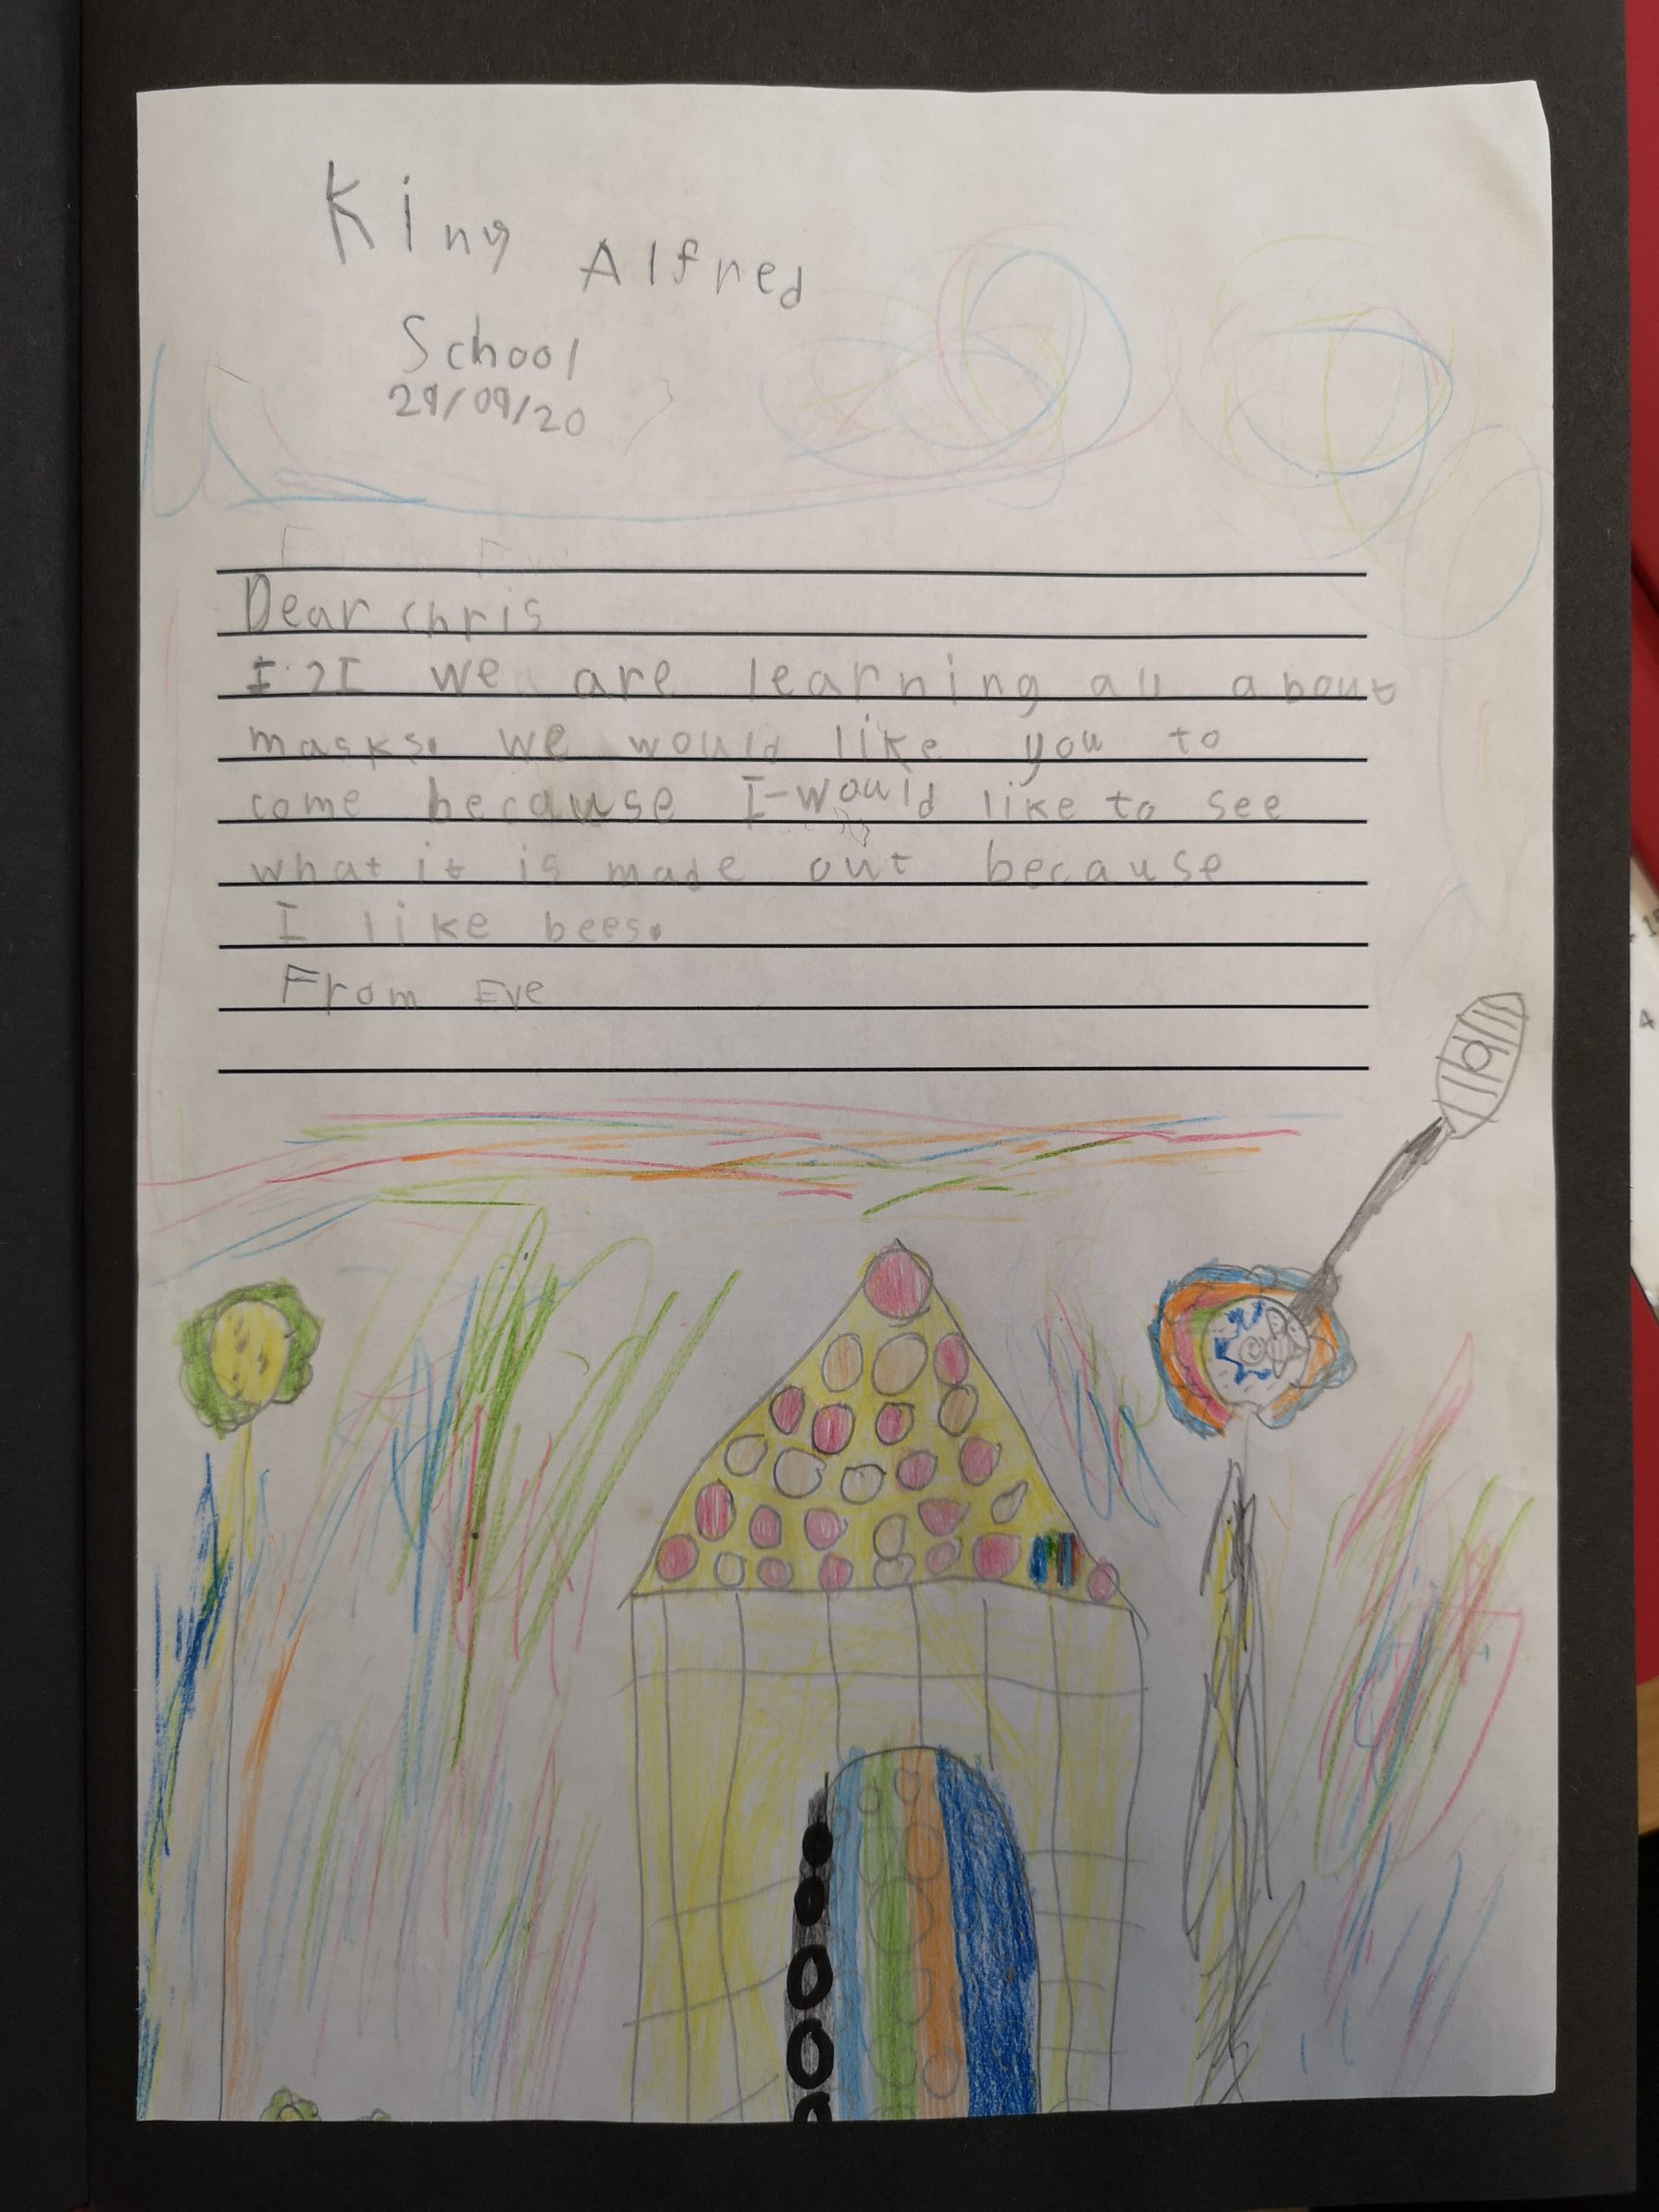 King Alfred
School
29/09/20
From Eve
Dear chris
we are learning all about
masks. we would like you to
come because I would like to see
what it is made out because
I like bees.
From Eve